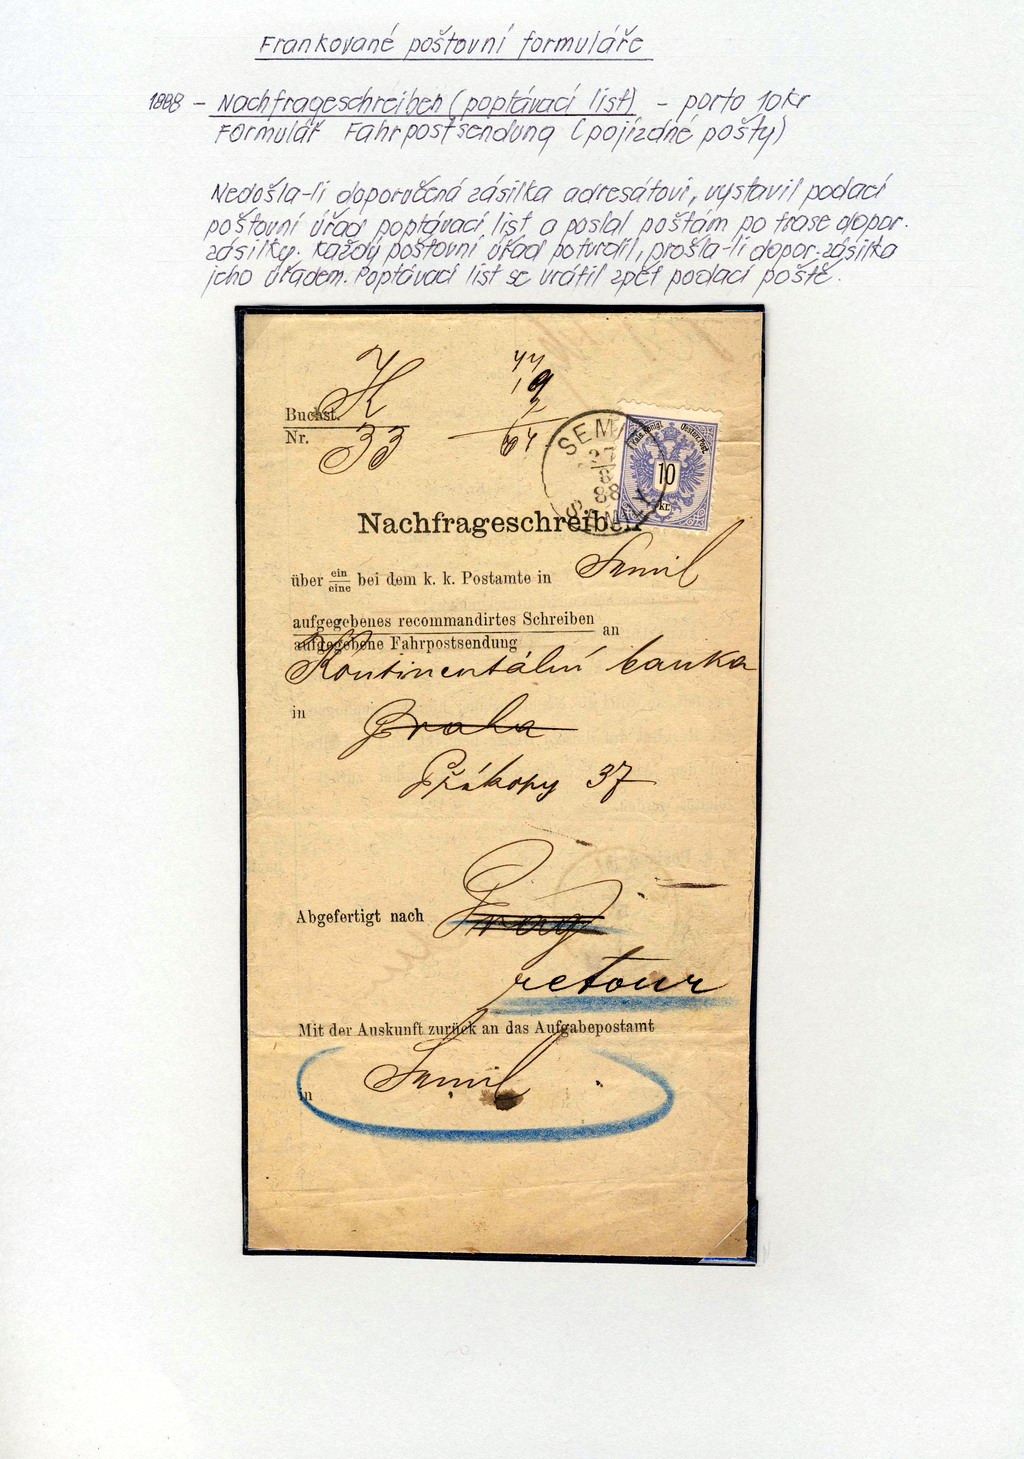 Frankované poštovní formuláře
1888 - Nachfrageschreiben (poptávací list) - porto 10kr
Formulář Fahrpostsendung (pojízdné pošty)
Nedošla-li doporučená zásilka adresátovi, vystavil podací
poštovní úřad poptávací list a poslal poštám po trase dopor.
zásilky. Každý poštovní úřad potvrdil, prošla-li dopor. zásilka
jeho úřadem. Poptávací list se vrátil zpět podací poště.
Buchst. K
Nr. 33
44
19
2
64
SEMIL
27
8
88
SEMILY
Kais. Königl. Oesterr. Post.
10
kr.
Nachfrageschreiben
über ein/eine bei dem k. k. Postamte in Semil
aufgegebenes recommandirtes Schreiben
aufgegebene Fahrpostsendung an
Kontinentální banka
in Praha
Příkopy 37
Abgefertigt nach Prag
retour
Mit der Auskunft zurück an das Aufgabepostamt
in Semil